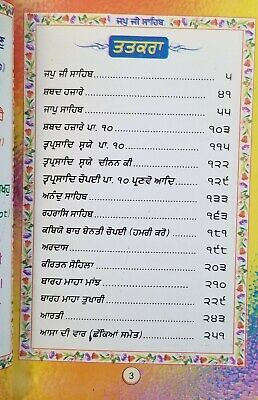 ਜਪੁ ਜੀ ਸਾਹਿਬ
ਤਤਕਰਾ
ਜਪੁ ਜੀ ਸਾਹਿਬ ੫
ਸ਼ਬਦ ਹਜ਼ਾਰੇ ੪੧
ਜਾਪੁ ਸਾਹਿਬ ੫੫
ਸ਼ਬਦ ਹਜ਼ਾਰੇ ਪਾ. ੧੦ ੧੦੩
ਤ੍ਵਪ੍ਰਸਾਦਿ ਸ੍ਵਯੇ ਪਾ. ੧੦ ੧੧੫
ਤ੍ਵਪ੍ਰਸਾਦਿ ਸ੍ਵਯੇ ਦੀਨਨ ਕੀ ੧੨੨
ਤ੍ਵਪ੍ਰਸਾਦਿ ਚੌਪਈ ਪਾ. ੧੦ ਪ੍ਰਣਵੋ ਆਦਿ ੧੨੯
ਅਨੰਦੁ ਸਾਹਿਬ ੧੩੩
ਰਹਰਾਸਿ ਸਾਹਿਬ ੧੬੩
ਕਬਿਯੋ ਬਾਚ ਬੇਨਤੀ ਚੌਪਈ (ਹਮਰੀ ਕਰੋ) ੧੮੧
ਅਰਦਾਸ ੧੯੮
ਕੀਰਤਨ ਸੋਹਿਲਾ ੨੦੩
ਬਾਰਹ ਮਾਹਾ ਮਾਂਝ ੨੧੦
ਬਾਰਹ ਮਾਹਾ ਤੁਖਾਰੀ ੨੨੯
ਆਰਤੀ ੨੪੩
ਆਸਾ ਦੀ ਵਾਰ (ਛੱਕਿਆਂ ਸਮੇਤ) ੨੫੧
3